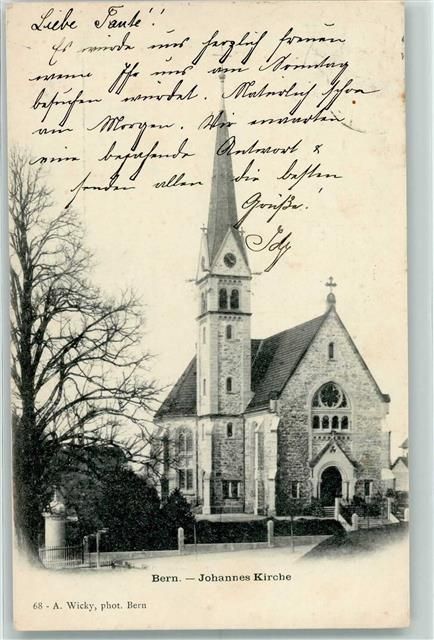 Liebe Tante!
Es würde uns herzlich freuen
wenn Ihr uns am Sonntag
besuchen würdet. Natürlich schon
am Morgen. Wir erwarten
eine bejahende Antwort &
senden allen die besten
Grüße!
Ida
Bern. — Johannes Kirche
68 - A. Wicky, phot. Bern